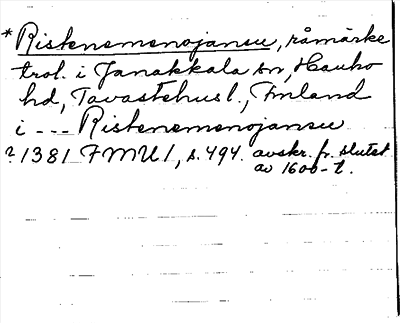 * Riskenemenojansu, råmärke
trol. i Janakkala sn, Hauho
hd, Tavastehusl., Finland
i --- Riskenemenojansu
? 1381 FMU 1, s. 494. avskr. fr. slutet
av 1600-t.